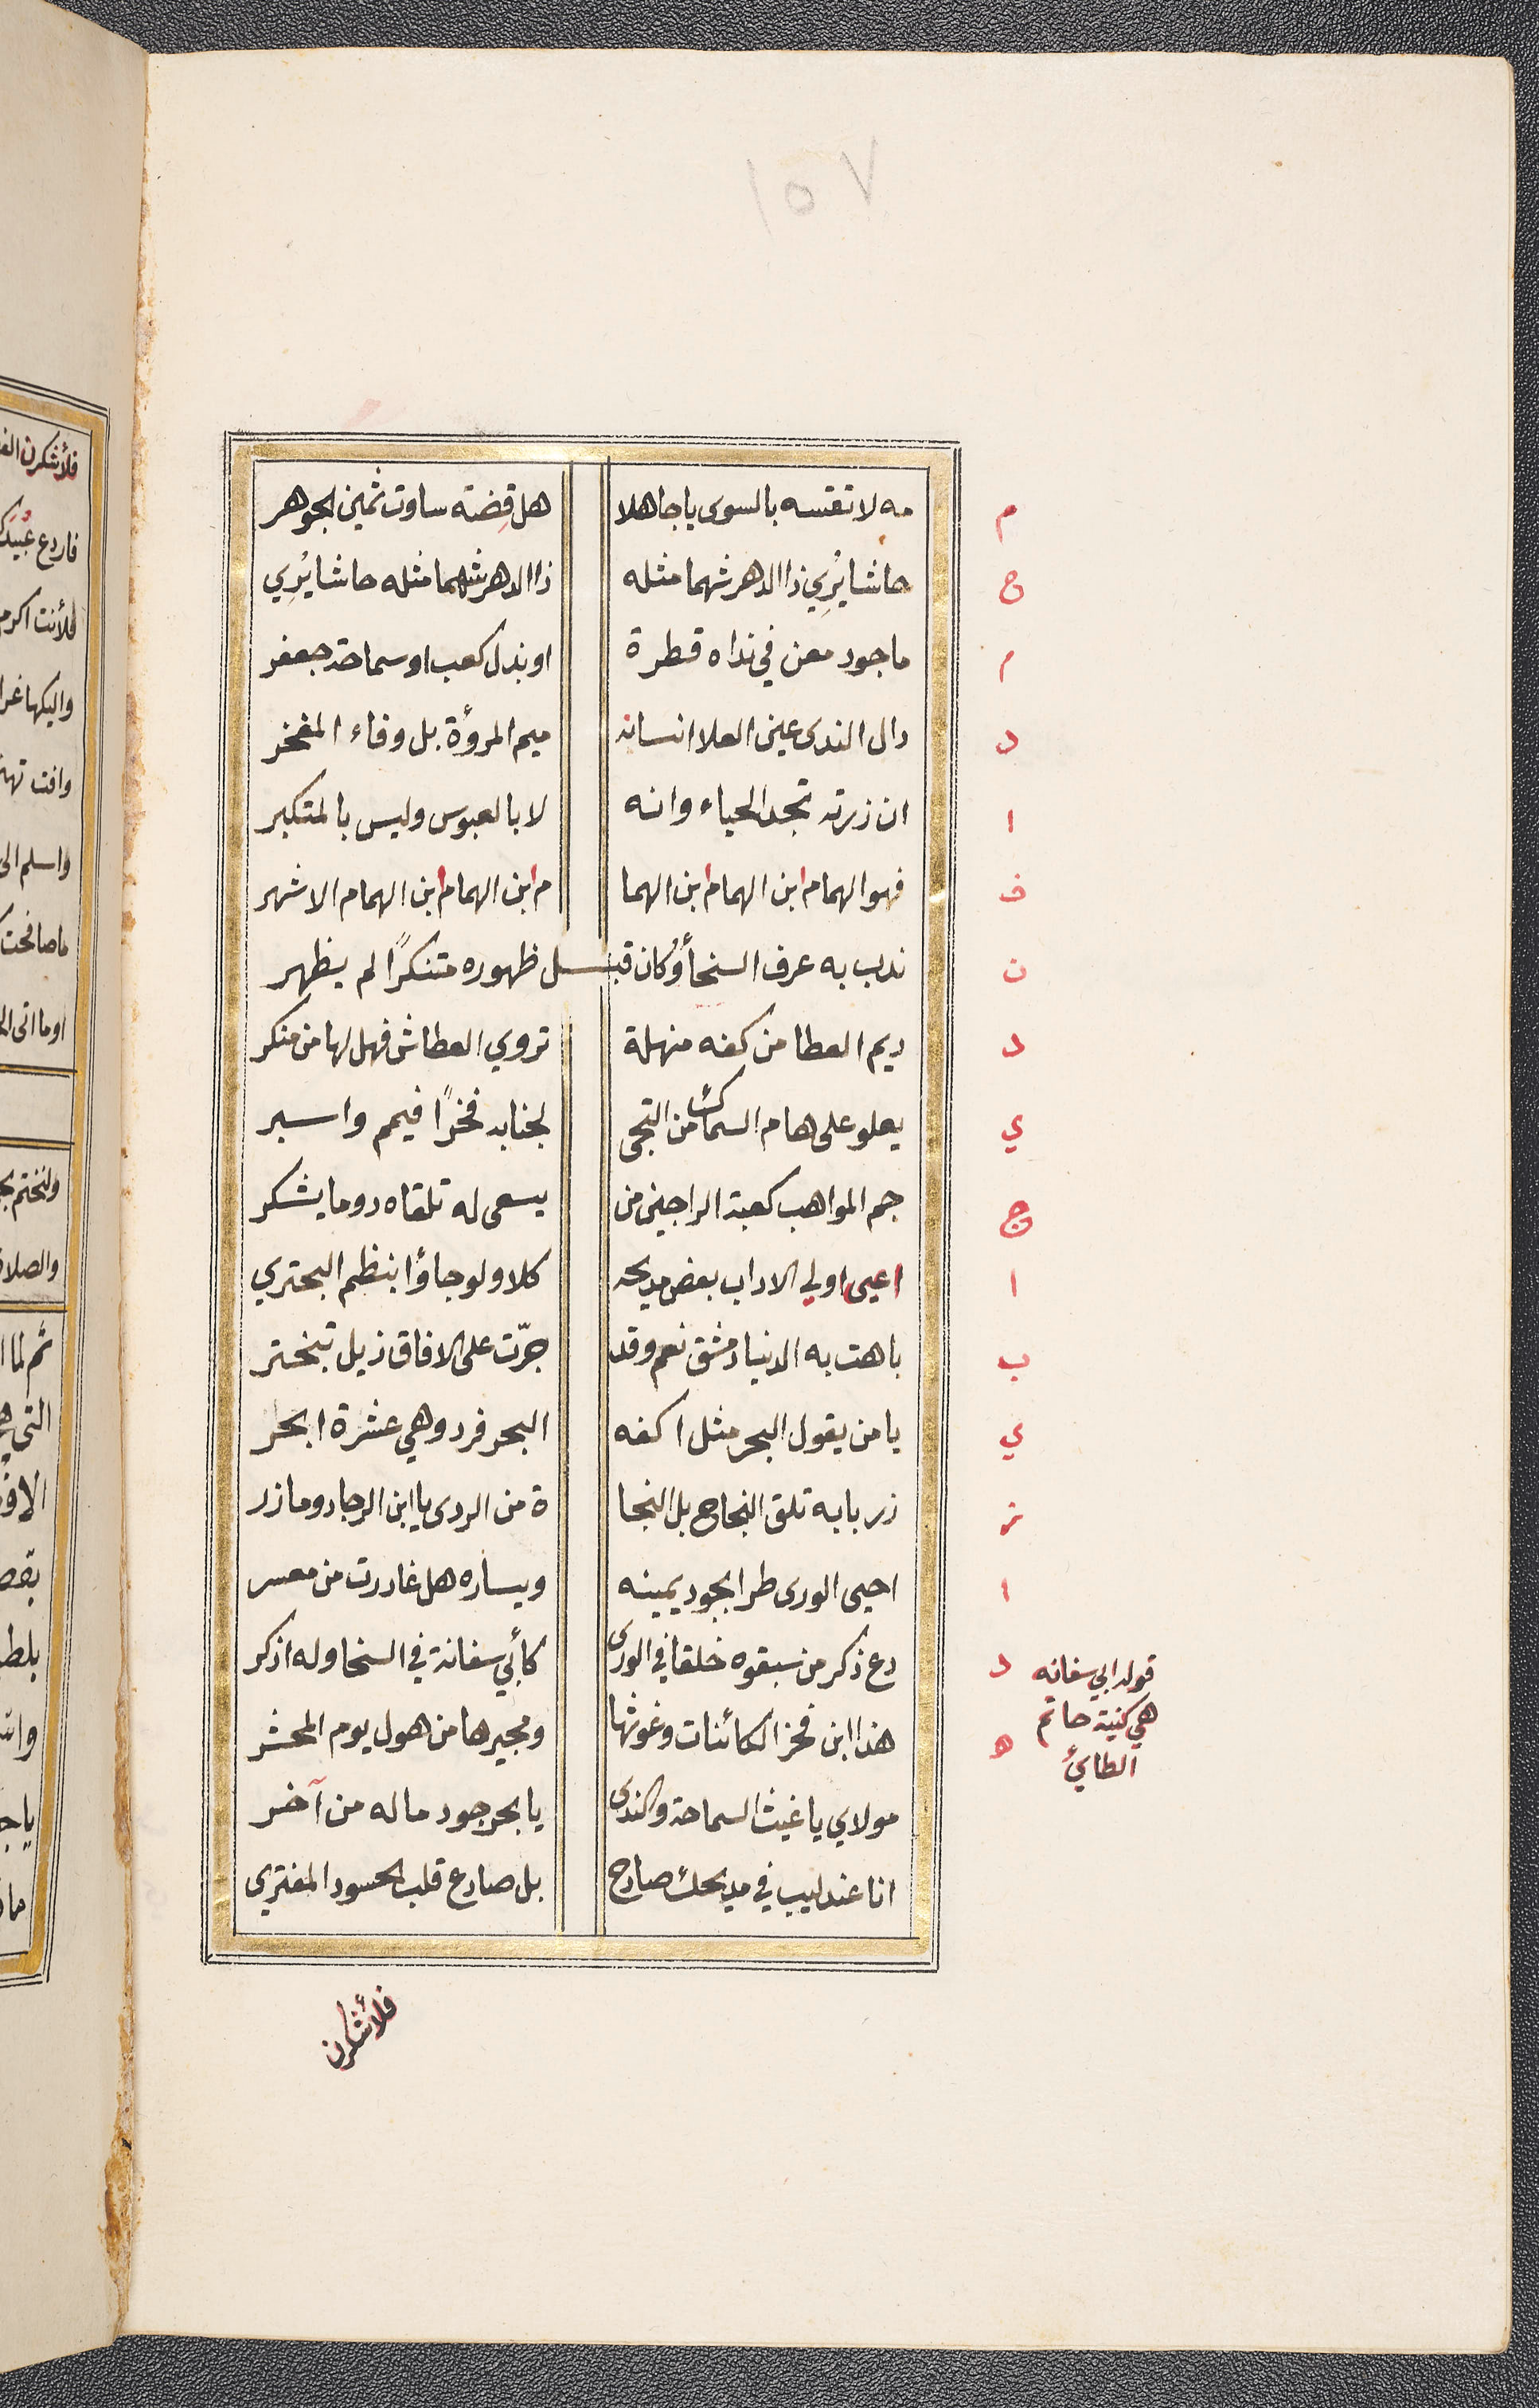 ١٥٧
م مه لا تقسه بالسوى يا جاهلا هل قِضة ساوت ثمين الجوهر
ح حاشا يُرِي ذا الدهر شهما مثله ذا الدهر شهما مثله حاشا يُرِي
م ما جود معن في نداه قطرة او بذل كعب او سماحة جعفر
د دال الندى عين العلا انسانه ميم المروأة بل وفاء المفخر
ا ان زرته تجد الحياء وانه لا بالعبوس وليس بالمتكبر
ف فهو الهمام ابن الهمام ابن الهما م ابن الهمام ابن الهمام الاشهر
ن ندب به عرف السخأ وُكان قبل ظهوره متنكرًا لم يظهر
د ديم العطا من كفه منهلة تروي العطاش فهل لها من منكر
ي يعلو على هام السماك من التجى لجنابه فخرًا فيمم واسبر
ج جم المواهب كعبة الراجين من يسعى له تلقاه دوما يشكر
ا اعيى اولي الاداب بعض مديحه كلا ولو جاؤا بنظم البحتري
ب باهت به الدنيا دمشق نعم وقد جرّت على الافاق ذيل تبختر
ي يا من يقول البحر مثل اكفه البحر فرد وهي عشرة ابحر
ز زر بابه تلق النجاح بل النجا ة من الردى يا ابن الرجا دوما زر
ا احيى الورى طرا بجود يمينه ويساره هل غادرت من معسر
د دع ذكر من سبقوه خلقا في الورى كأبي سفانة في السخا وله اذكر
قوله ابي سفانه
هي كنية حاتم
الطايئ
ه هذا ابن فخر الكائنات وغوثها ومجيرها من هول يوم المحشر
مولاي يا غيث السماحة والندى يا بحر جود ما له من آخر
انا عندليب في مديحك صادح بل صادع قلب الحسود المفتري
فلأشكرن
فلأشكرن
فاردع
فلأنت اكرم
واليكها
وافت
واسلم
ما صافحت
اوما اتى
ولنختم
والصلاة
ثم لما
التي